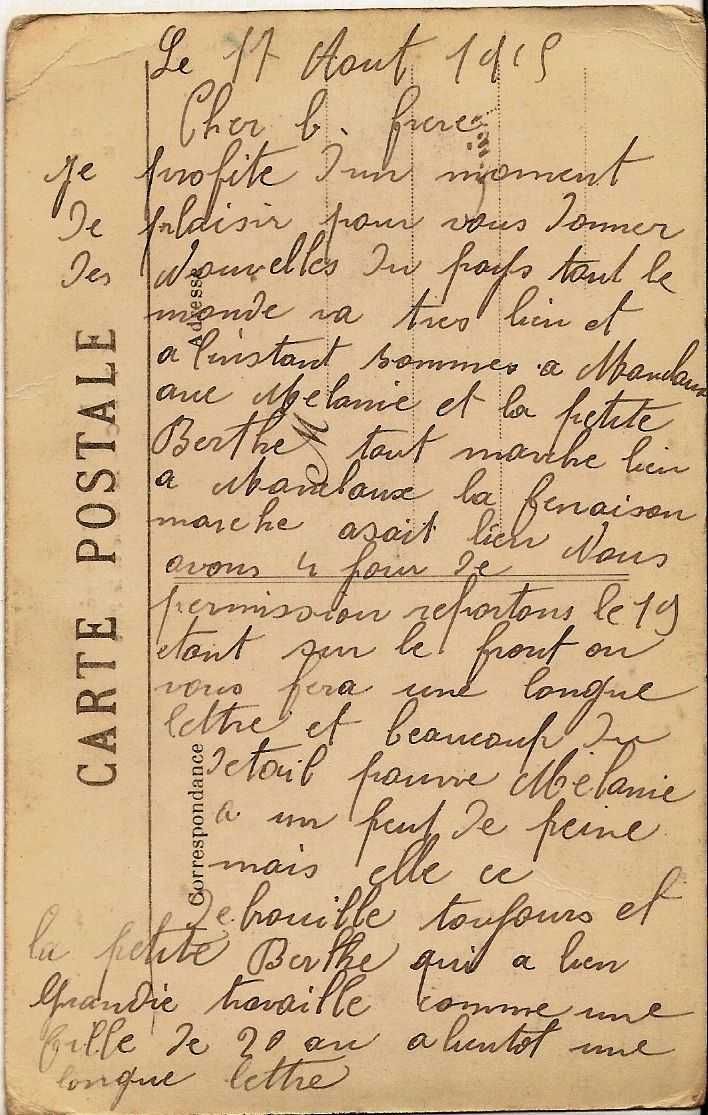 Le 17 Aout 1915
Cher b. frere
je profite d'un moment
de plaisir pour vous donner
des Nouvelles du pays tout le
monde va tres bien et
a l'instant sommes a Mandaux
avec Melanie et la petite
Berthe tout marche bien
a Mandaux la fenaison
marche asait bien Nous
avons 4 jour de
permission repartons le 19
etant sur le front on
vous fera une longue
lettre et beaucoup du
detail pauvre Mélanie
a un peut de peine
mais elle ce
debrouille toujours et
la petite Berthe qui a bien
Grandie travaille comme une
fille de 20 an a bientot une
longue lettre
CARTE POSTALE
Correspondance
Adresse
M